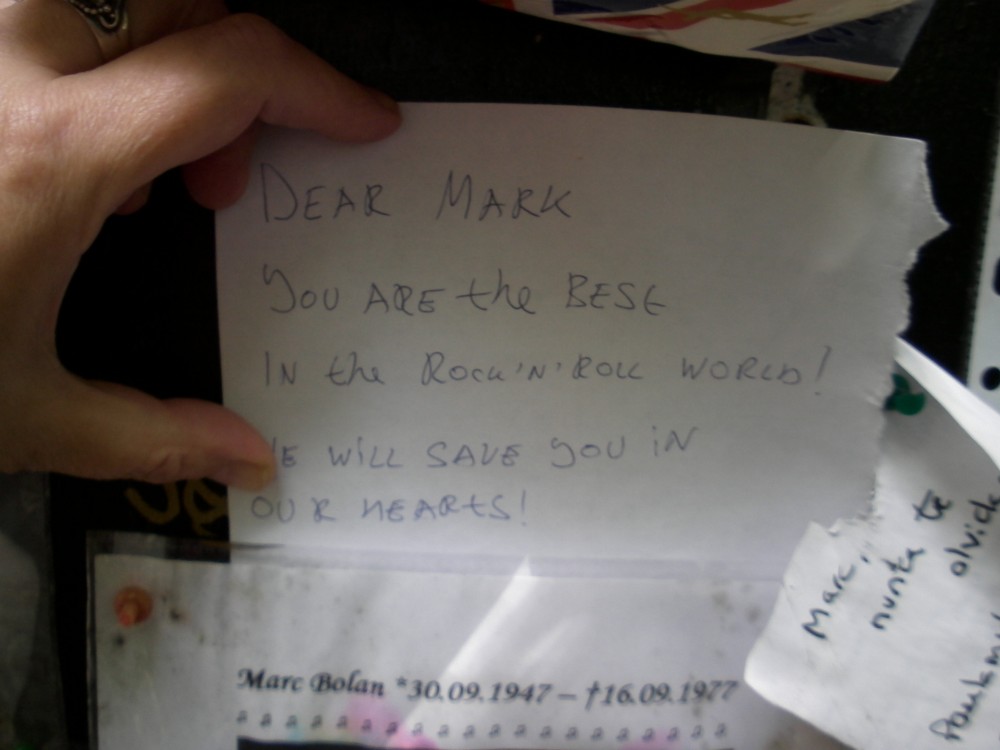 DEAR MARK
YOU ARE the BEST
IN the ROCK'N'ROLL WORLD!
WE WILL SAVE YOU IN
OUR HEARTS!
Marc Bolan *30.09.1947 – †16.09.1977
Marc,
nunca te